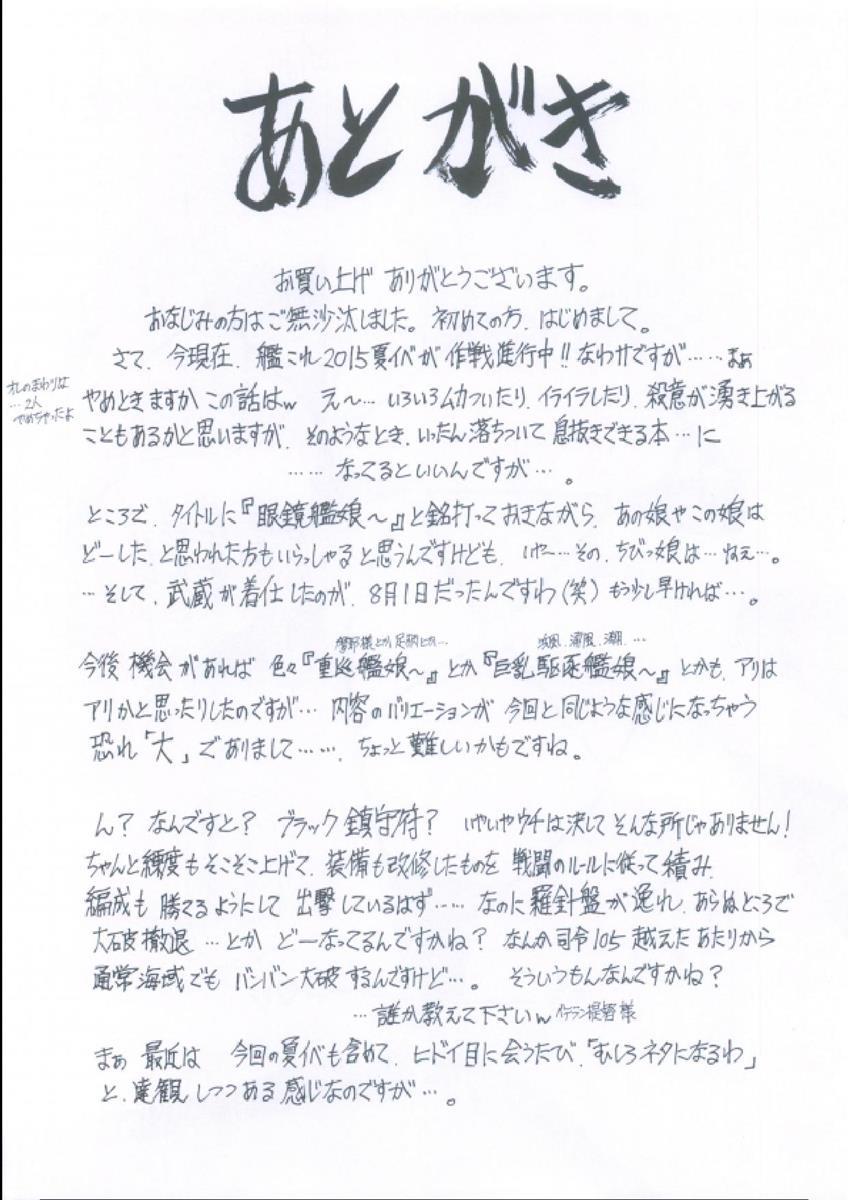 あとがき
お買い上げ ありがとうございます。
おなじみの方はご無沙汰しました。初めての方、はじめまして。
さて、今現在、艦これ2015夏イベが作戦進行中!! なわけですが……まぁ
オレのまわりは
…2人
やめちゃったよ
やめときますか この話はw え〜… いろいろムカついたり、イライラしたり、殺意が湧き上がる
こともあるかと思いますが、そのようなとき、いったん落ちついて 息抜きできる本…に
…… なってるといいんですが…。
ところで、タイトルに『眼鏡艦娘〜』と銘打っておきながら、あの娘やこの娘は
どーした、と思われた方もいらっしゃると思うんですけども、いや〜…その、ちびっ娘は…ねぇ…。
…そして、武蔵が着任したのが、8月1日だったんですわ(笑) もう少し早ければ…。
摩耶様とか足柄とか…
浜風、潮、…
今後 機会があれば 色々『重巡艦娘〜』とか『巨乳駆逐艦娘〜』とかも、アリは
アリかと思ったりしたのですが… 内容のバリエーションが 今回と同じような感じになっちゃう
恐れ「大」でありまして……、ちょっと難しいかもですね。
ん? なんですと? ブラック鎮守府? いやいやウチは決してそんな所じゃありません!
ちゃんと練度もそこそこ上げて、装備も改修したものを 戦闘のルールに従って積み、
編成も 勝てるようにして 出撃しているはず…… なのに羅針盤が逸れ、あらぬところで
大破撤退 …とか どーなってるんですかね? なんか司令105越えたあたりから
通常海域でも バンバン大破するんですけど…。 そういうもんなんですかね?
…誰か教えて下さいw イケテラン提督様
まぁ 最近は 今回の夏イベも含めて、ヒドイ目に会うたび、「むしろネタになるわ」
と、達観しつつある感じなのですが…。